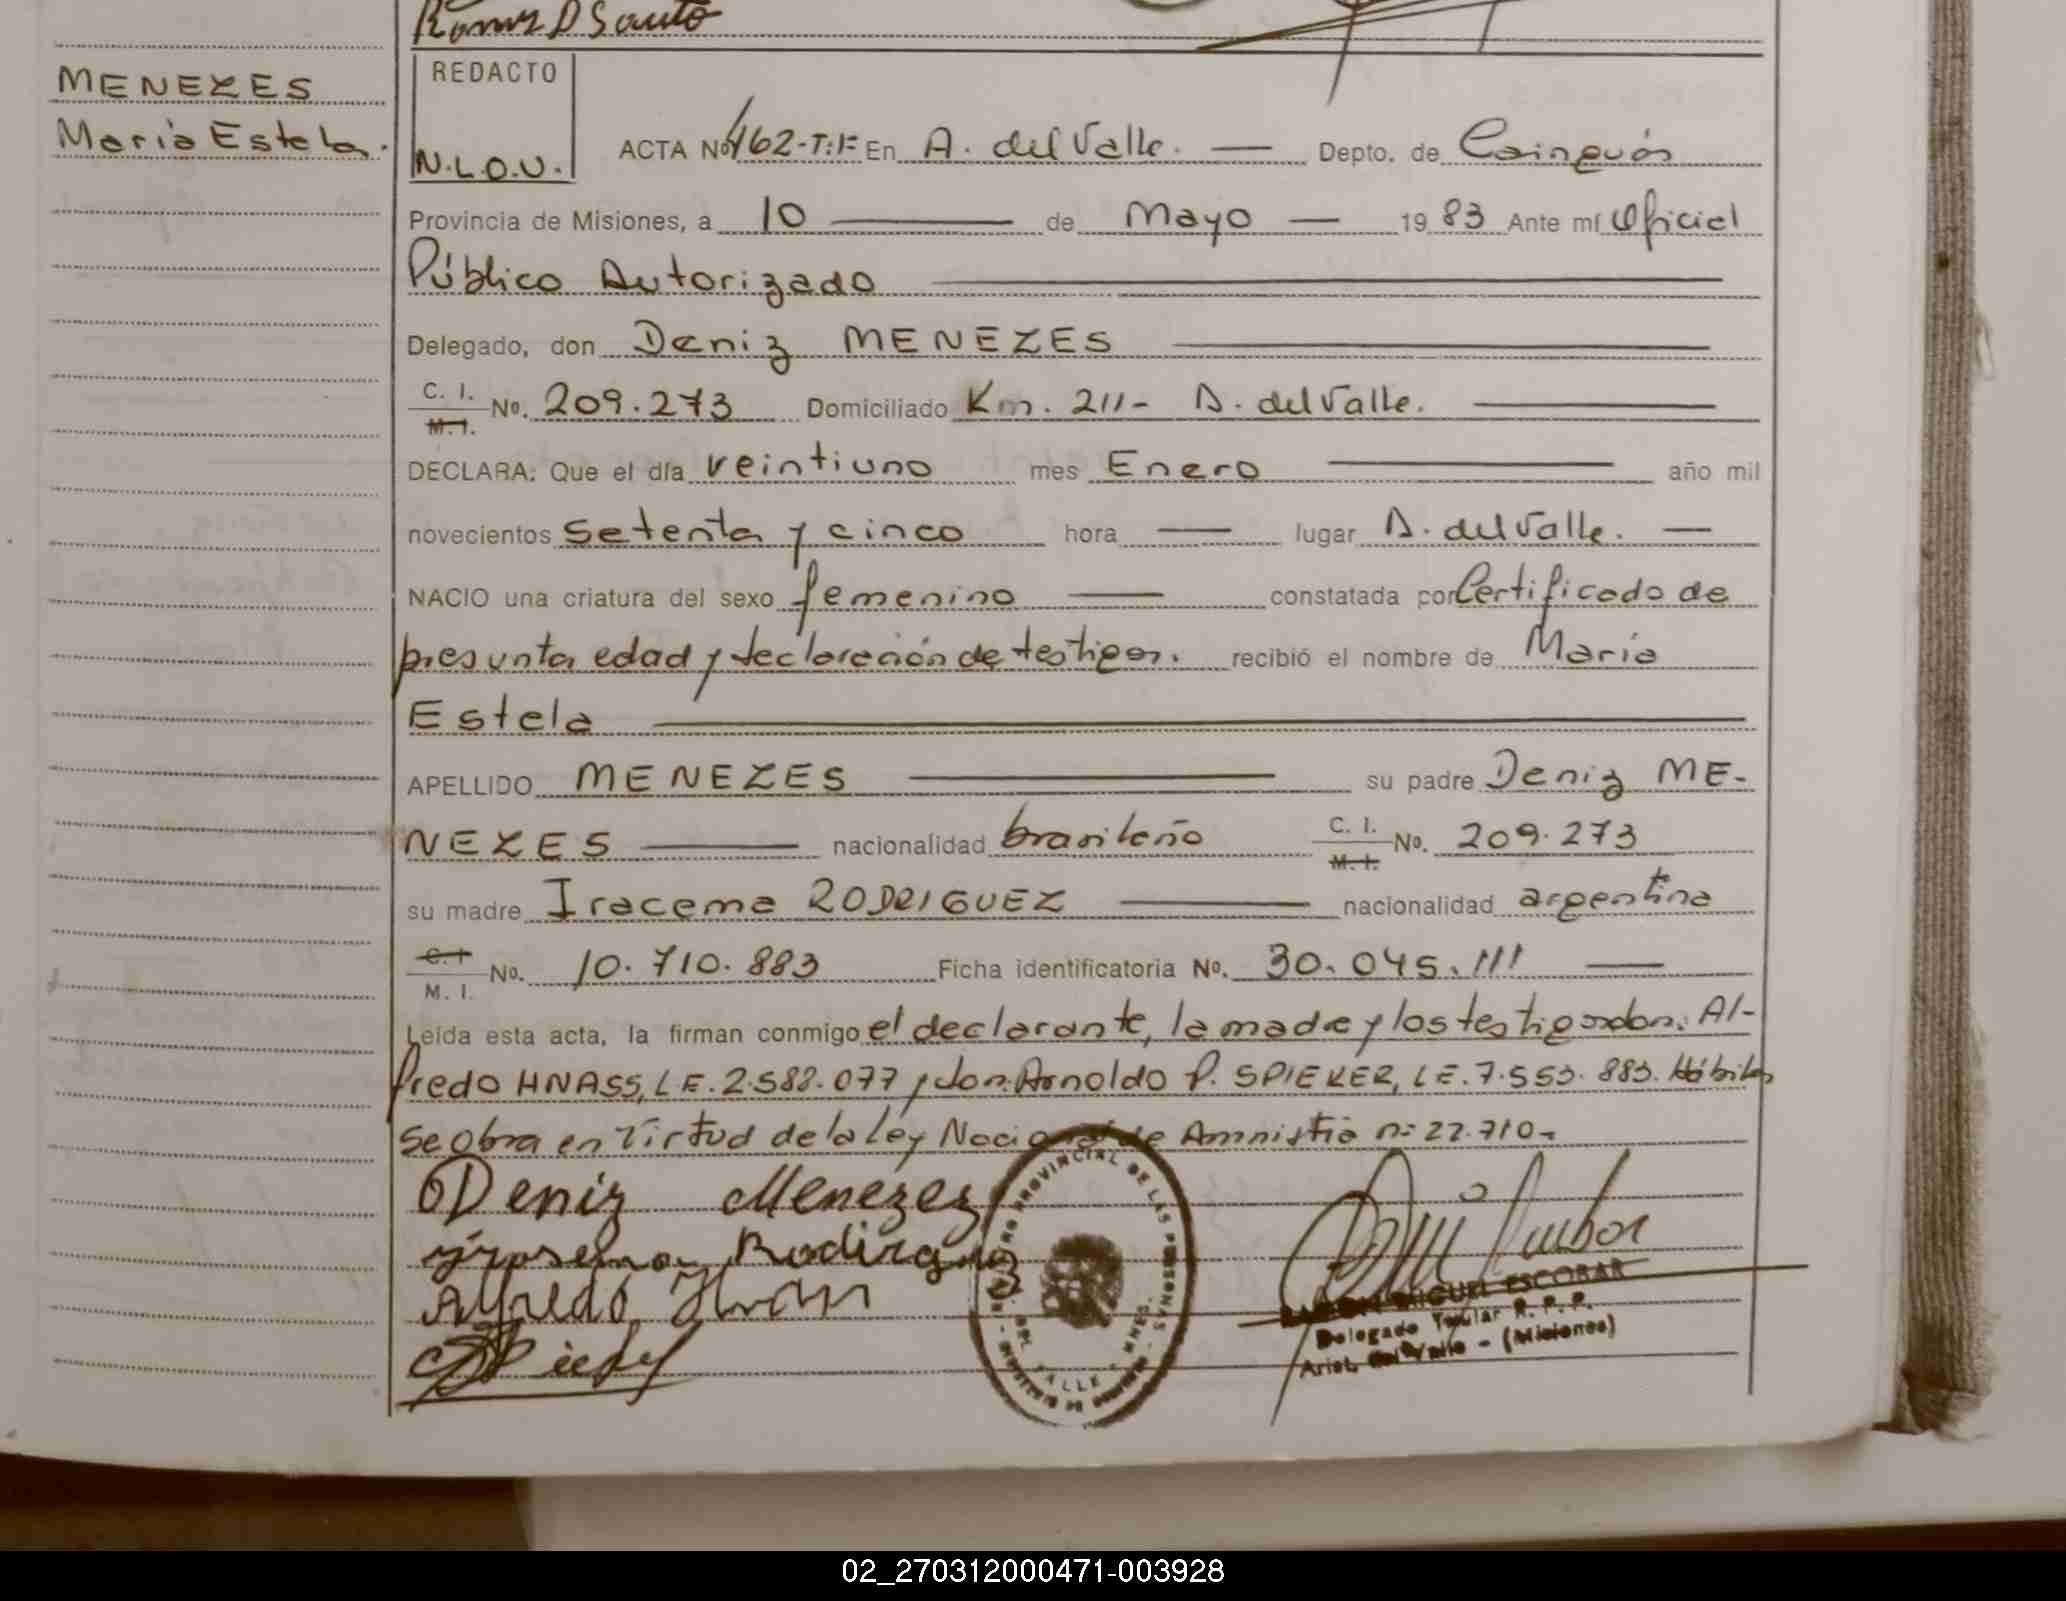 Ramos D Santo
MENEZES
María Estela.
REDACTO
N.L.O.U.
ACTA No 462-T:I: En A. del Valle. — Depto. de Cainguás
Provincia de Misiones, a 10 — de Mayo — 1983 Ante mí Oficial
Público Autorizado
Delegado, don Deniz MENEZES
C. I. M. I. No. 209.273 Domiciliado Km. 211- A. del Valle.
DECLARA: Que el día veintiuno mes Enero — año mil
novecientos setenta y cinco hora — lugar A. del Valle. —
NACIO una criatura del sexo femenino — constatada por Certificado de
presunta edad y declaración de testigos. recibió el nombre de María
Estela
APELLIDO MENEZES — su padre Deniz ME-
NEZES — nacionalidad brasileño C. I. M. I. No. 209.273
su madre Iracema RODRIGUEZ — nacionalidad argentina
C. I M. I. No. 10.710.883 Ficha identificatoria No. 30.045.111 —
Leída esta acta, la firman conmigo el declarante, la madre y los testigos don: Al-
fredo HNASS, LE. 2.588.077 y don: Arnoldo P. SPIEKER, LE. 7.553.883. Hábiles
Se obra en virtud de la Ley Nacional de Amnistía n: 22.710-
Deniz Menezes
Alfredo
PROVINCIAL DE LAS PERSONAS
DEL VALLE - MNES.
RAMON MIGUEL ESCOBAR
Delegado Titular R. P. P.
Arist. del Valle - (Misiones)
02_270312000471-003928